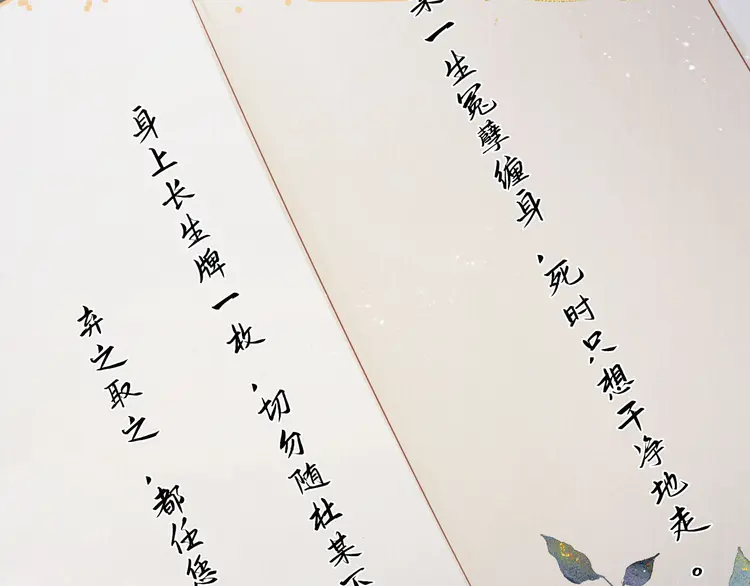 一生冤孽缠身，死时只想干净地走。
身上长生牌一枚，切勿随杜某
弃之取之，都任